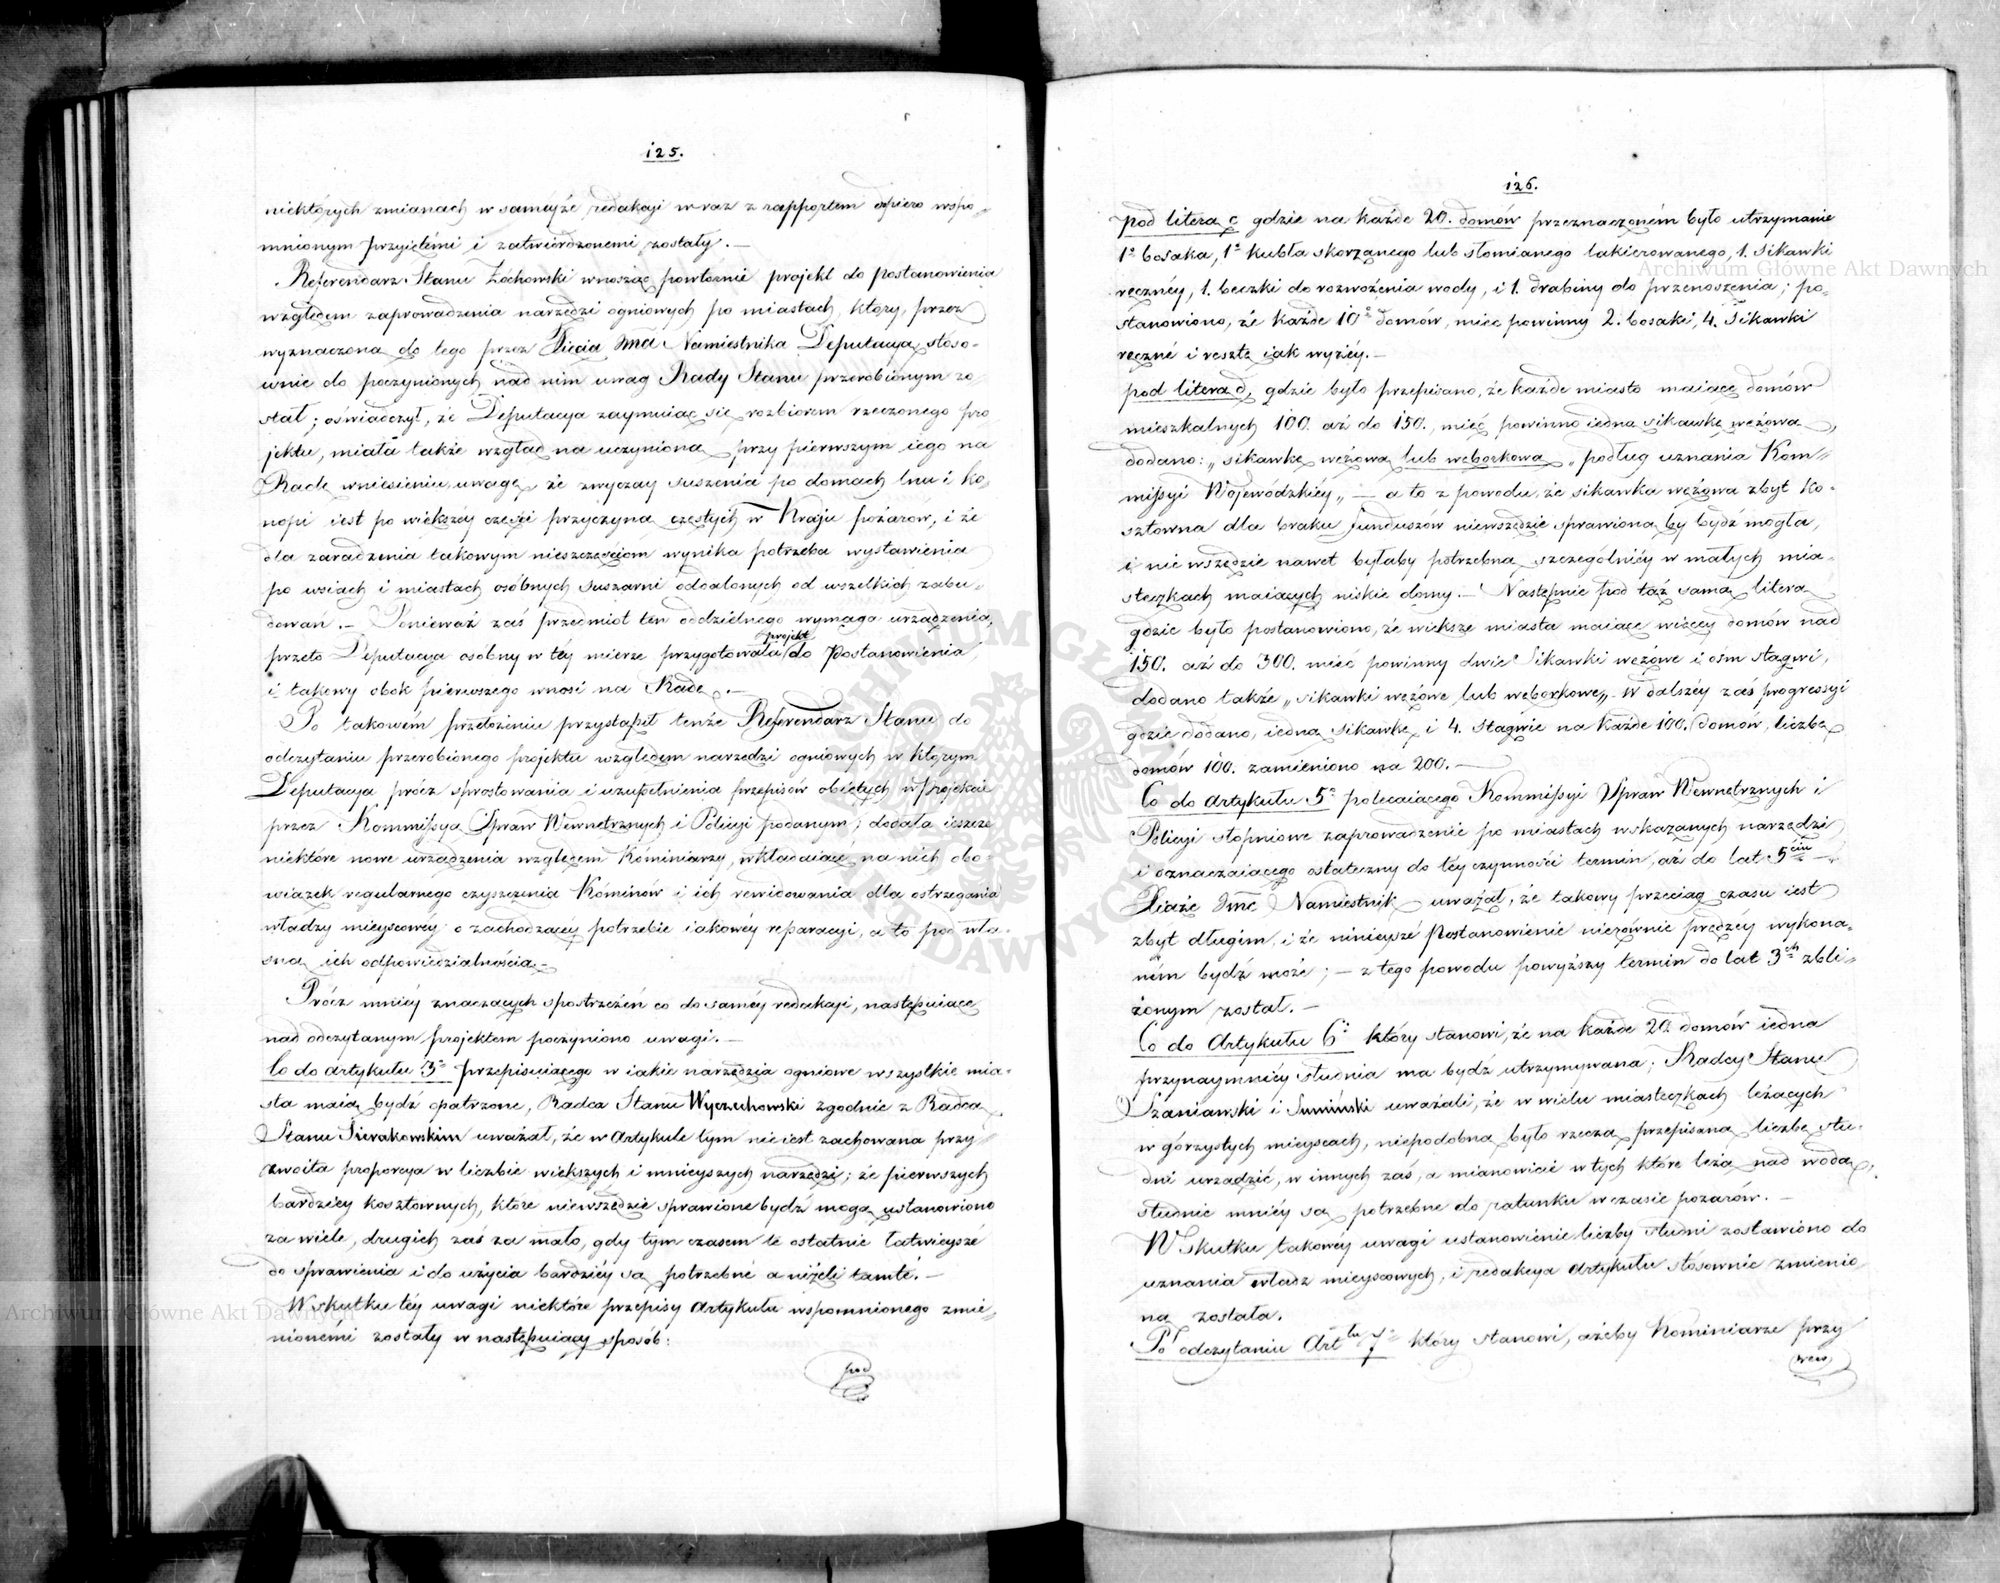 125.
niektórych zmianach w saméyże redakcyi wraz z rapportem dopiero wspo„
mnionym przyiętémi i zatwierdzonemi zostały. —
Referendarz Stanu Żochowski wnosząc powtórnie projekt do postanowienia
względem zaprowadzenia narzędzi ogniowych po miastach, który, przez
wyznaczoną do tego przez Xięcia Jmci Namiestnika Deputacyą, stoso„
wnie do poczynionych nad nim uwag Rady Stanu przerobionym zo„
stał; oświadczył, że Deputacya zaymuiąc się rozbiorem rzeczonego pro
jektu, miała także wzgląd na uczynioną przy pierwszym iego na
Radę wniesieniu, uwagę, że zwyczay suszenia po domach lnu i ko„
nopi iest po większéy części przyczyną częstych w Kraju pożarow, i że
dla zaradzenia takowym nieszczęściom wynika potrzeba wystawienia
po wsiach i miastach osóbnych suszarni oddalonych od wszelkich zabu„
dowań. — Ponieważ zaś przedmiot ten oddzielnego wymaga urządzenia,
projekt
przeto Deputacya osóbny w téy mierze przygotowała do Postanowienia,
i takowy obok pierwszego wnosi na Radę. —
Po takowém przełożeniu przystąpił tenże Referendarz Stanu do
odczytaniu przerobionego projektu względem narzędzi ogniowych w którym
Deputacya prócz sprostowania i uzupełnienia przepisów obiętych w projekcie
przez Kommissyą Spraw Wewnętrznych i Policyi podanym; dodała ieszcze
niektóre nowe urządzenia względem Kóminiarzy, wkładaiące na nich obo„
wiązek regularnego czyszczenia Kóminów i ich rewidowania dla ostrzegania
władzy mieyscowéy o zachodzącéy potrzebie iakowéy reparacyi, a to pod wła„
sną ich odpowiedzialnością. —
Prócz mniéy znaczących spostrzeżeń co do saméy redakcyi, następuiące
nad odczytanym projektem poczyniono uwagi. —
Co do artykułu 3º przepisuiącego w iakie narzędzia ogniowe wszystkie mia„
sta maią bydź opatrzone, Radca Stanu Wyczechowski zgodnie z Radcą
Stanu Sierakowskim uważał, że w Artykule tym nie iest zachowana przy„
zwoita proporcya w liczbie większych i mnieyszych narzędzi; że pierwszych
bardziéy kosztownych, które niewszędzie sprawione bydź mogą ustanowiono
za wiele, drugich zaś za mało, gdy tym czasem te ostatnie łatwieysze
do sprawienia i do użycia bardziéy są potrzebne a niżeli tamte. —
W skutku téy uwagi niektóre przepisy Artykułu wspomnionego zmie„
nionémi zostały w następuiący sposób:
pod
126.
pod literą c gdzie na każde 20. domów przeznaczoném było utrzymanie
1º bosaka, 1º kubła skorzanego lub słomianego lakierowanego, 1. Sikawki
ręcznéy, 1. beczki do rozwożenia wody, i 1. drabiny do przenoszenia; po„
stanowiono, że każde 10º domów, mieć powinny 2. bosaki, 4. Sikawki
ręczné i resztę iak wyżéy. —
pod literą d, gdzie było przepisano, że każde miasto maiące domów
mieszkalnych 100. aż do 150., mieć powinno iedną sikawkę wężową,
dodano: „sikawkę wężową lub węborkową „podług uznania Kom„
missyi Wojewódzkiéy„ — a to z powodu, że sikawka wężowa zbyt ko„
sztowna dla braku funduszów niewszędzie sprawioną by bydź mogła,
i nie wszędzie nawet byłaby potrzebną szczególniéy w małych mia„
steczkach maiących niskie domy. — Następnie pod tąż samą literą
gdzie było postanowiono, że większe miasta maiące więcéy domów nad
150. aż do 300. mieć powinny dwie Sikawki wężowe i ośm stągwi,
dodano także „sikawki wężowe lub węborkowe„ W dalszéy zaś progressyi
gdzie dodano, iedną sikawkę i 4. Stągwie na każde 100. domów, liczbę
domów 100. zamieniono na 200. —
Co do Artykułu 5º polecaiącego Kommissyi Spraw Wewnętrznych i
Policyi stopniowe zaprowadzenie po miastach wskazanych narzędzi
i oznaczaiącego ostateczny do téy czynności termin, aż do lat 5ciu —
Xiąże Jmć Namiestnik uważał, że takowy przeciąg czasu iest
zbyt długim, i że ninieysze Postanowienie nierównie prędzéy wykona„
ném bydź może; — z tego powodu powyższy termin do lat 3ch zbli„
żonym został. —
Co do Artykułu 6º który stanowi, że na każde 20. domów iedna
przynaymniéy studnia ma bydź utrzymywana; Radcy Stanu
Szaniawski i Sumiński uważali, że w wielu miasteczkach leżących
w górzystych mieyscach, niepodobną było rzeczą przepisaną liczbę stu„
dni urządzić, w innych zaś, a mianowicie w tych które leżą nad wodą,
studnie mniéy są potrzebne do ratunku w czasie pozarów. —
W skutku takowéy uwagi ustanowienie liczby studni zostawiono do
uznania władz mieyscowych, i redakcya Artykułu stósownie zmienio„
ną została.
Po odczytaniu Arttu 7º który stanowi, ażeby Kominiarze przy
wew
Archiwum Główne Akt Dawnych
Archiwum Główne Akt Dawnych
ARCHIWUM GŁÓWNE AKT DAWNYCH